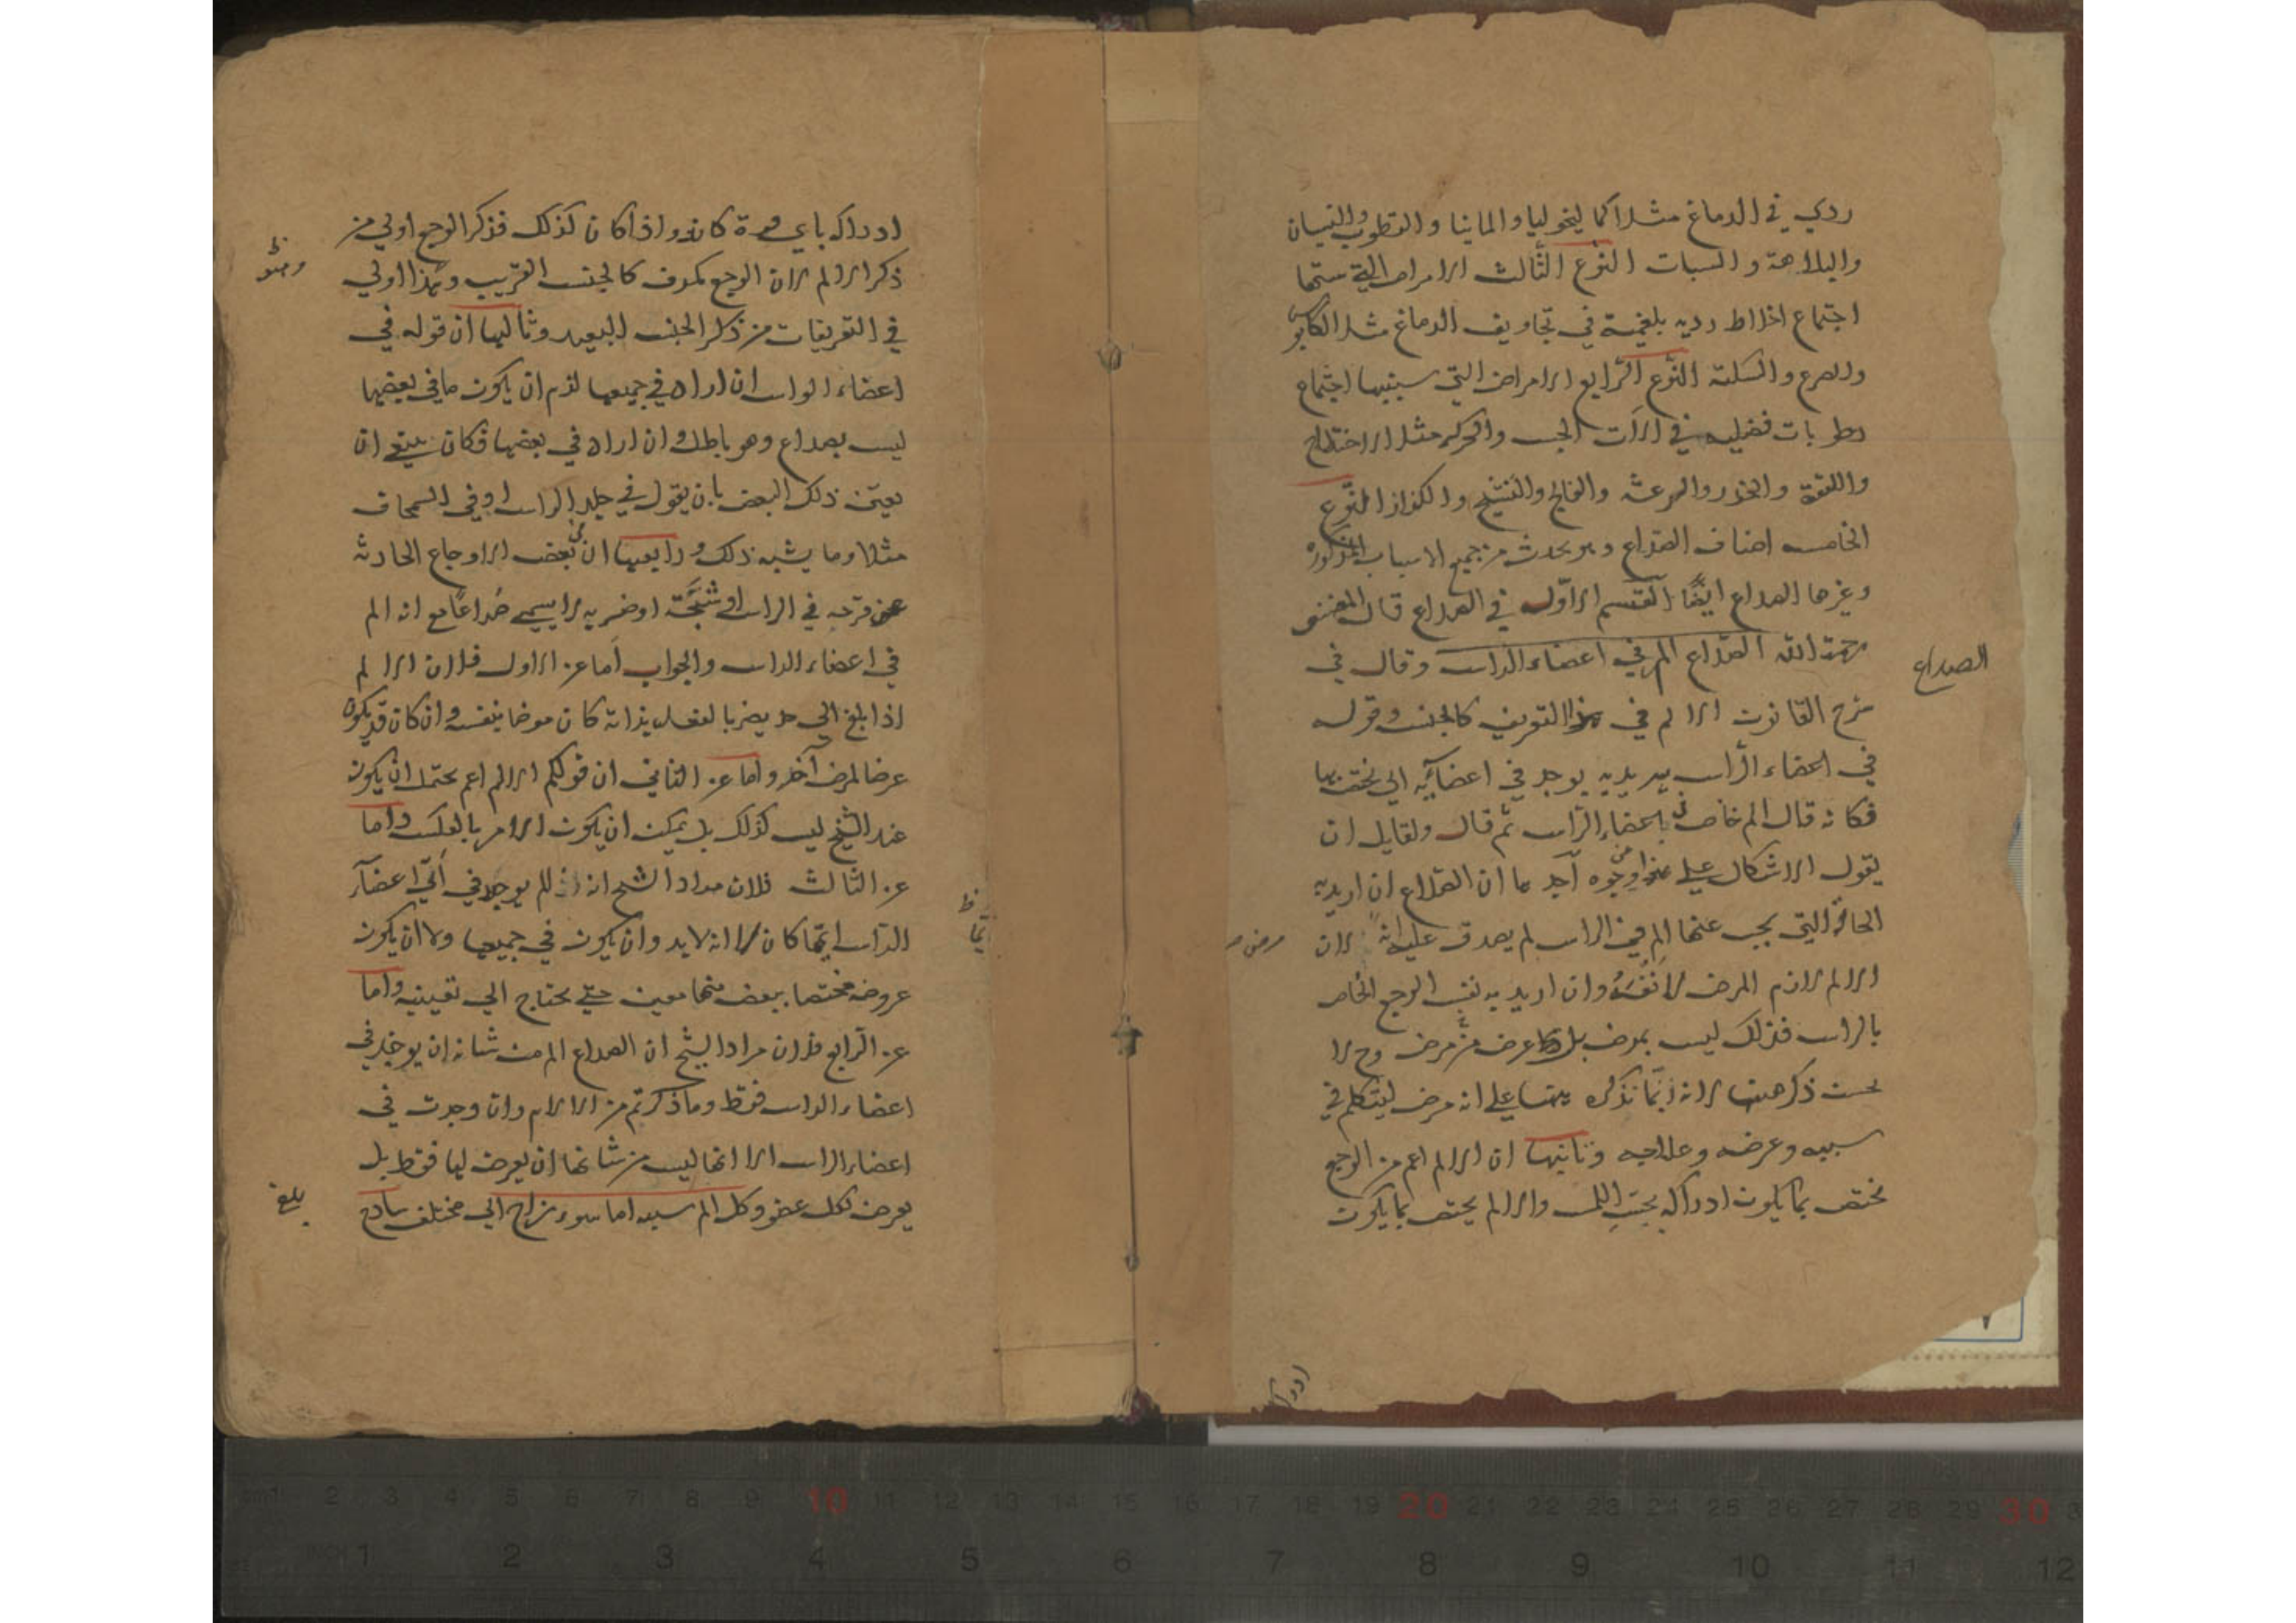 ردي في الدماغ مثل الماليخوليا والمانيا والقطرب والنسيان
والبلاهة والسبات النوع الثالث الامراض التي سببها
اجتماع اخلاط رديه بلغمية في تجاويف الدماغ مثل الكابوس
والصرع والسكتة النوع الرابع الامراض التي سببها اجتماع
رطوبات فضليه في الآت الحس والحركه مثل الاختلاج
واللقوة والخدر والرعشه والفالج والتشنج والكزاز النوع
الخامس اصناف الصداع وهو يحدث من جميع الاسباب المذكوره
وغيرها الصداع ايضًا القسم الاوّل في الصداع قال المصنف
رحمة الله الصداع الم في اعضاء الراس وقال في
شرح القانون الالم في هذا التعريف كالجنس وقوله
في اعضاء الرأس يريد به يوجد في اعضائه التي يختص بها
فكانه قال الم خاص في اعضاء الرأس ثم قال ولقايل ان
يقول الاشكال على هذا من وجوه احدها ان الصداع ان اريد به
الحالة التي يجب عنها الم في الراس لم يصدق عليه انه لان
الالم لازم المرض لا نفسه وان اريد به نفس الوجع الخاص
بالراس فذلك ليس بمرض بل عرض من مرض وح لا
يحسن ذكره هنا لانه انما نذكره هنا على انه مرض ليتكلم في
سببه وعرضه وعلاجه وثانيها ان الالم اعم من الوجع
مختص بما يكون ادراكه بحس اللمس والالم يختص بما يكون
الصداع
مرض
ادراكه
ادراكه باي قوة كانت واذا كان كذلك فذكر الوجع اولي من
ذكر الالم لان الوجع يكون كالجنس القريب وهذا اولي
في التعريفات من ذكر الجنس البعيد وثالثها ان قوله في
اعضاء الراس ان اراد في جميعها لزم ان يكون ما في بعضها
ليس بصداع وهو باطل وان اراد في بعضها فكان ينبغي ان
يعين ذلك البعض بان يقول في جلد الراس او في السمحاق
مثلا وما يشبه ذلك ورابعها ان بعض الاوجاع الحادثه
عن قرحه في الراس او شجّة او ضربه لا يسمي صُداعًا مع انه الم
في اعضاء الراس والجواب اما عن الاول فلان الالم
اذا بلغ الي حد يضر بالفعل بذاته كان مرضا بنفسه وان كان قد يكون
عرضا لمرض آخر واما عن الثاني ان قولكم الالم اعم يحتمل ان يكون
عند الشيخ ليس كذلك بل يمكن ان يكون الامر بالعكس واما
عن الثالث فلان مراد الشيخ انه الم يوجد في أيّ اعضآء
الرأس ايّها كان لا انه لا بد وان يكون في جميعها ولا ان يكون
عروضه مختصا ببعض منها معين حتي يحتاج الي تعيينه واما
عن الرابع فلان مراد الشيخ ان الصداع الم من شانه ان يوجد في
اعضاء الراس فقط وما ذكرتم من الالام وان وجدت في
اعضاء الراس الا انها ليس من شانها ان يعرض لها فقط بل
يعرض لكل عضو وكل الم سببه اما سوء مزاج الي مختلف ساذج
بلغ